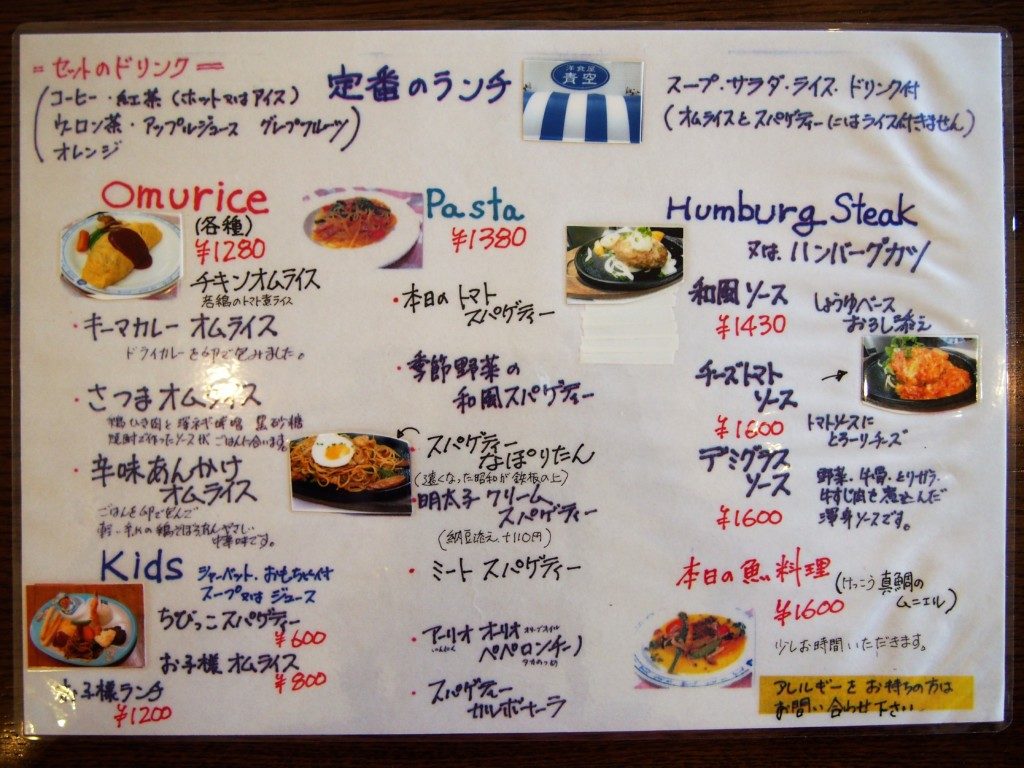 = セットのドリンク =
(コーヒー・紅茶(ホット又はアイス)
ウーロン茶・アップルジュース グレプフルーツ)
オレンジ
定番のランチ
洋食屋
青空
スープ・サラダ・ライス・ドリンク付
(オムライスとスパゲティーにはライス付きません)
Omurice
(各種)
¥1280
チキンオムライス
若鶏のトマト煮ライス
・キーマカレー オムライス
ドライカレーを卵で包みました。
・さつまオムライス
鶏ひき肉と 黒砂糖
焼酎で作ったソースが ごはんに合います
・辛味あんかけ
オムライス
ごはんを卵でつつんで
鶏そぼろあんやさしい
中華味です。
Kids
シャーベット・おもちゃ付
スープ又は ジュース
ちびっこスパゲティー
¥600
お子様 オムライス
¥800
お子様ランチ
¥1200
Pasta
¥1380
・本日の トマト
スパゲティー
・季節野菜の
和風スパゲティー
・スパゲティー
なぽりたん
(遠くなった昭和が鉄板の上)
・明太子クリーム
スパゲティー
(納豆添え +110円)
・ミート スパゲティー
・アーリオ オーリオ オリーブオイル
にんにく ペペロンチーノ
タカのつめ
・スパゲティー
カルボナーラ
Humburg Steak
又は ハンバーグカツ
和風ソース
¥1430
しょうゆベース
おろし添え
チーズトマト
ソース
¥1600
トマトソースに
とろーりチーズ
デミグラス
ソース
¥1600
野菜・牛骨・とりガラ・
牛すじ肉を煮込んだ
渾身ソースです。
本日の魚料理
¥1600
(けっこう真鯛の
ムニエル)
少しお時間いただきます。
アレルギーをお持ちの方は
お問い合わせ下さい